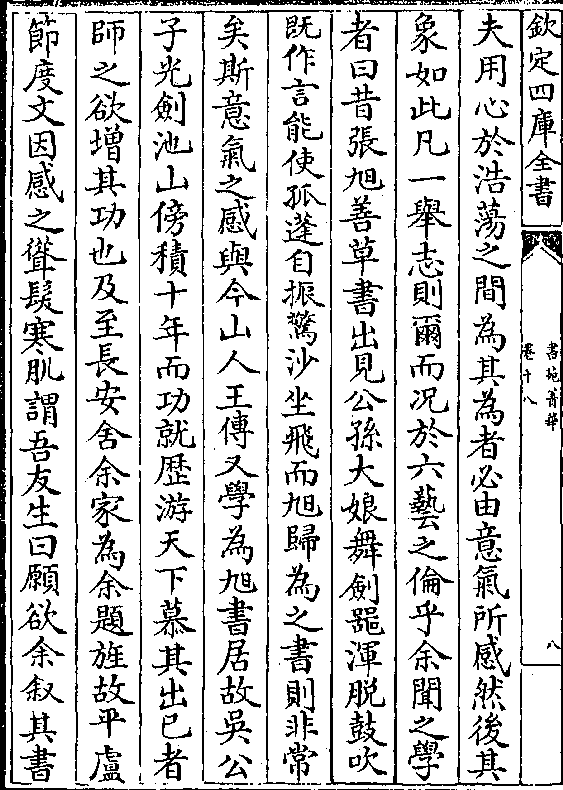 欽定四庫全書
書苑菁華
卷十八
八
夫用心於浩蕩之間為其為者必由意氣所感然後其
象如此凡一舉志則爾而况於六藝之倫乎余聞之學
者曰昔張旭善草書出見公孫大娘舞劍噐渾脱鼓吹
既作言能使孤蓬自振驚沙坐飛而旭歸為之書則非常
矣斯意氣之感與今山人王傳乂學為旭書居故吳公
子光劍池山傍積十年而功就歴游天下慕其出已者
師之欲増其功也及至長安舍余家為余題旌故平盧
節度文因感之聳髮寒肌謂吾友生曰願欲余叙其書